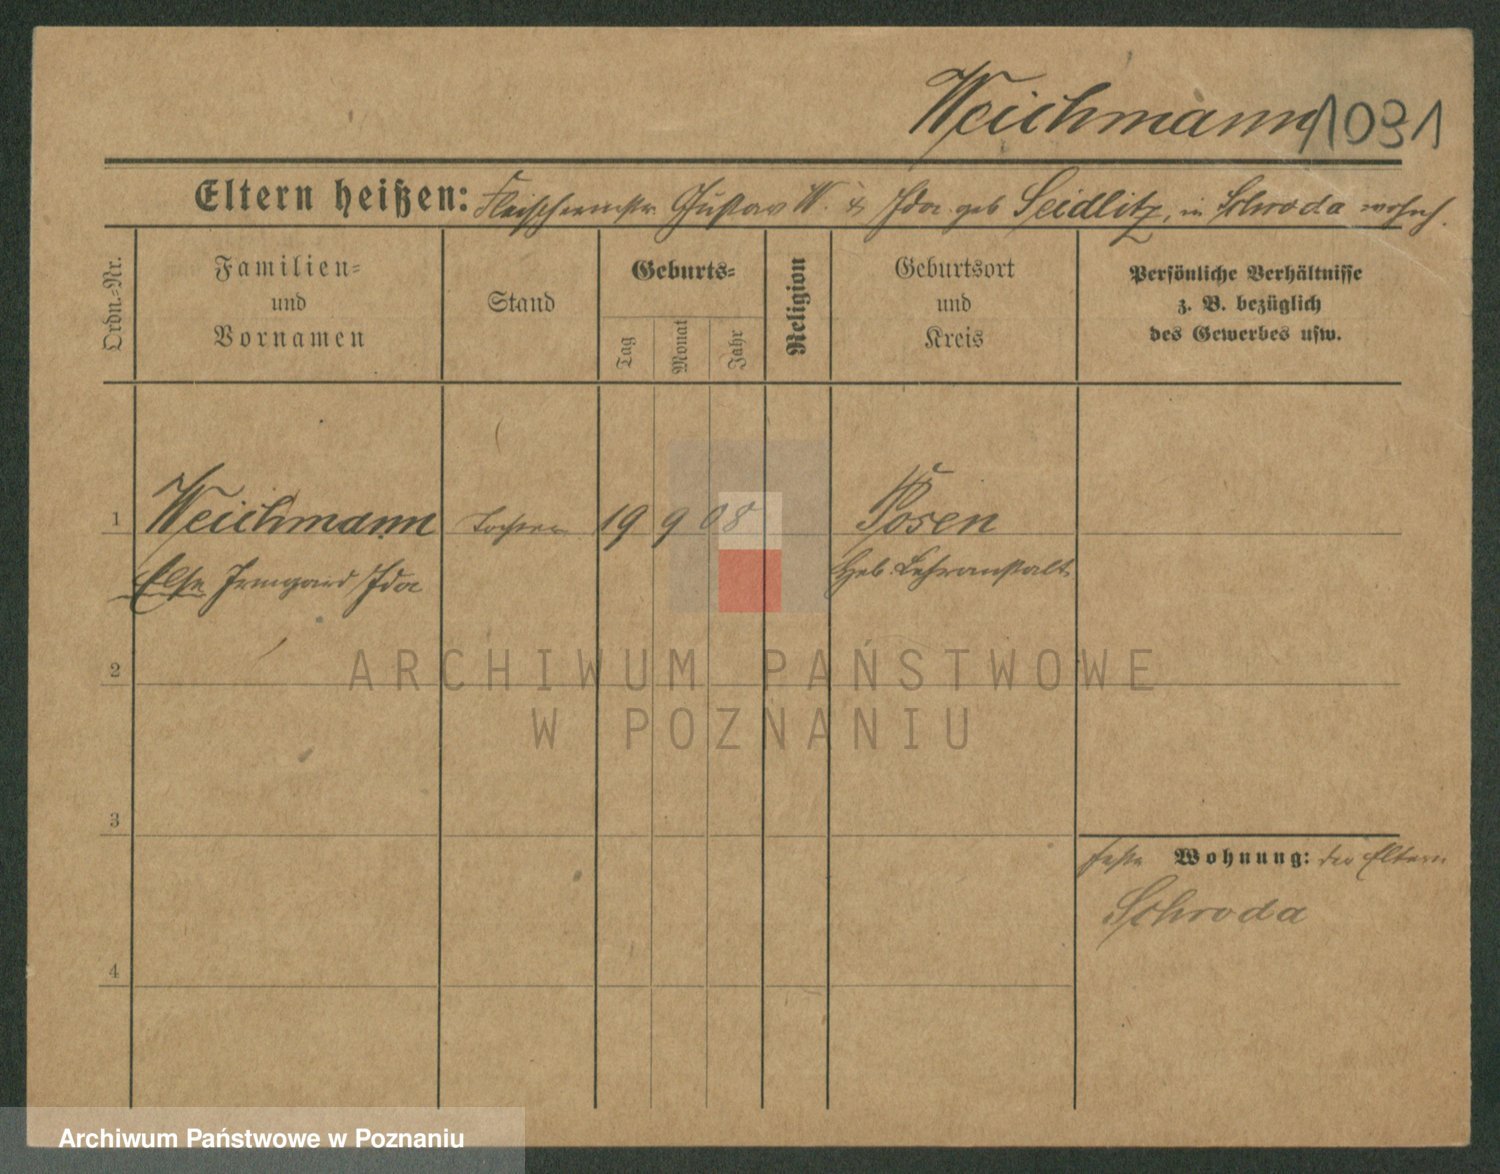 Weichmann 1031
Eltern heißen: Fleischermstr. Gustav W. & Ida geb Seidlitz, in Schroda wohnh.
Ordn.-Nr.
Familien-
und
Vornamen
Stand
Geburts-
Tag
Monat
Jahr
Religion
Geburtsort
und
Kreis
Persönliche Verhältnisse
z. B. bezüglich
des Gewerbes usw.
1 Weichmann Tochter 19 9 08 Posen
Else Irmgard Ida Heb. Lehranstalt
2
ARCHIWUM PAŃSTWOWE
W POZNANIU
3
feste Wohnung: der Eltern
Schroda
4
Archiwum Państwowe w Poznaniu